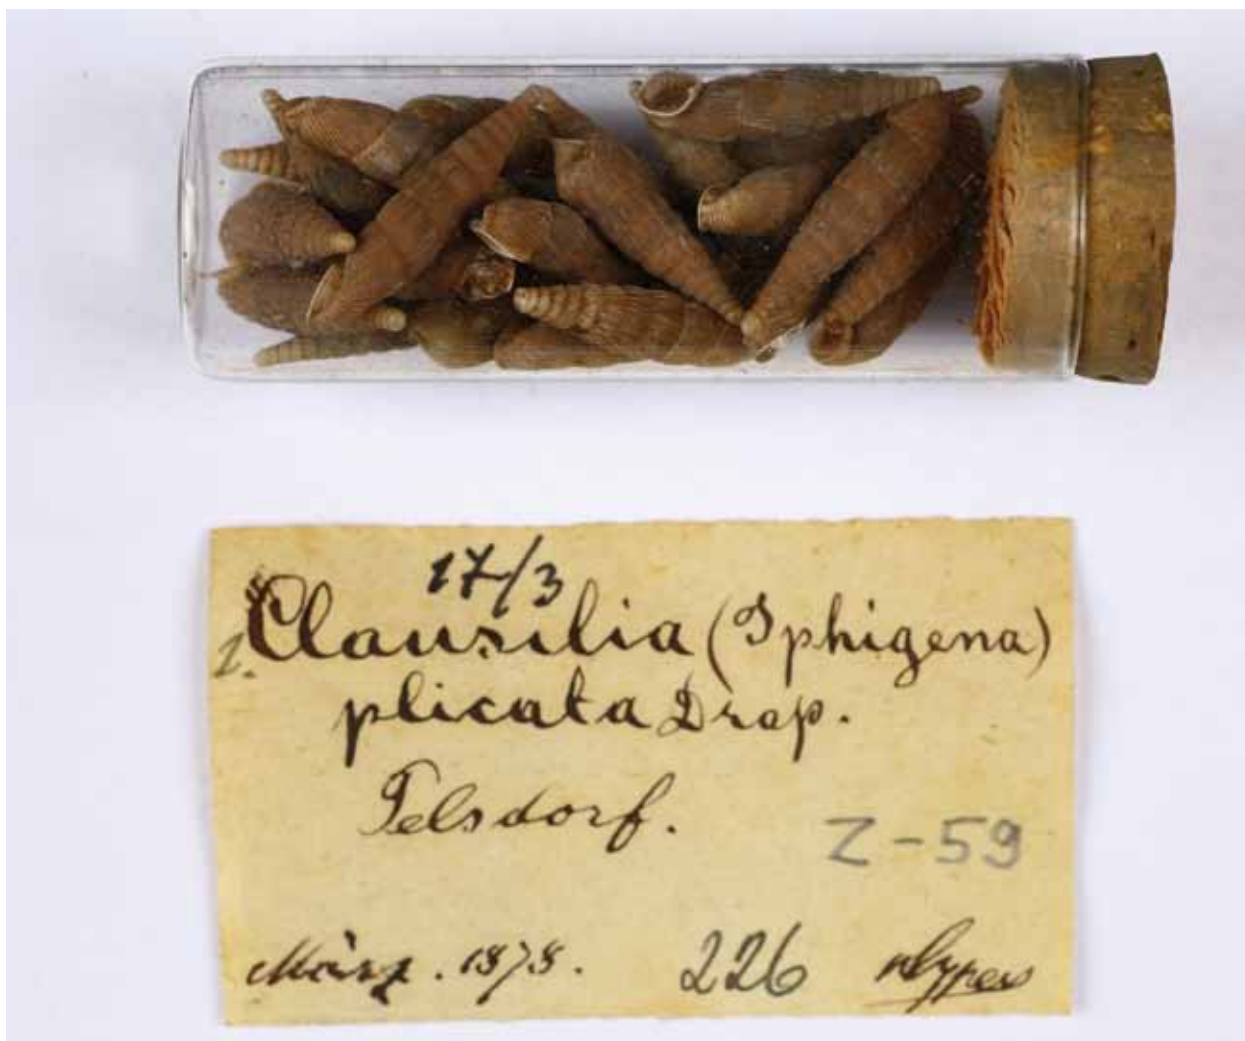 17/3
1. Clausilia (Iphigena)
plicata Drap.
Felsdorf.
Z-59
März. 1878. 226